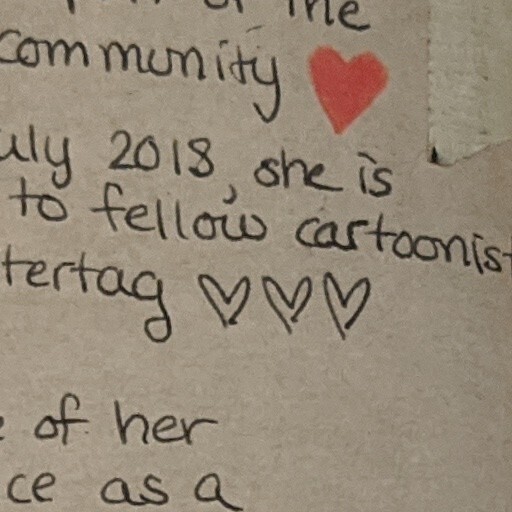 of the
community ❤
uly 2018, she is
to fellow cartoonist
tertag ♡♡♡
of her
ce as a